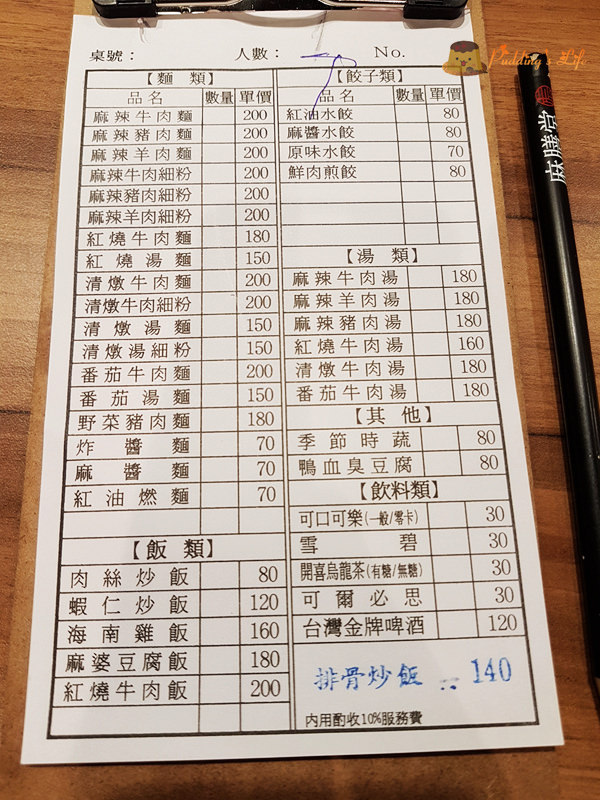 桌號： 人數： No.
Pudding's Life
【麵 類】
品名 數量 單價
麻辣牛肉麵 200
麻辣豬肉麵 200
麻辣羊肉麵 200
麻辣牛肉細粉 200
麻辣豬肉細粉 200
麻辣羊肉細粉 200
紅燒牛肉麵 180
紅燒湯麵 150
清燉牛肉麵 200
清燉牛肉細粉 200
清燉湯麵 150
清燉湯細粉 150
番茄牛肉麵 200
番茄湯麵 150
野菜豬肉麵 180
炸醬麵 70
麻醬麵 70
紅油燃麵 70
【飯 類】
肉絲炒飯 80
蝦仁炒飯 120
海南雞飯 160
麻婆豆腐飯 180
紅燒牛肉飯 200
【餃子類】
品名 數量 單價
紅油水餃 80
麻醬水餃 80
原味水餃 70
鮮肉煎餃 80
【湯 類】
麻辣牛肉湯 180
麻辣羊肉湯 180
麻辣豬肉湯 180
紅燒牛肉湯 160
清燉牛肉湯 180
番茄牛肉湯 180
【其 他】
季節時蔬 80
鴨血臭豆腐 80
【飲料類】
可口可樂(一般/零卡) 30
雪碧 30
開喜烏龍茶(有糖/無糖) 30
可爾必思 30
台灣金牌啤酒 120
排骨炒飯 .. 140
內用酌收10%服務費
麻膳堂